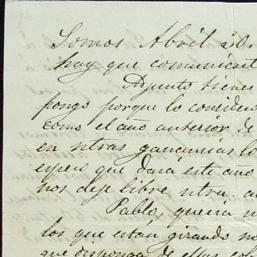 Somos Abril 30.
hay que comunicart
Adjunto tienes
pongo porque lo consider
como el año anterior de
en ntras ganancias lo
espero que dará este año
nos deje libre ntra.
Pablo, queria
los que estan girando no
que disponga de ellos